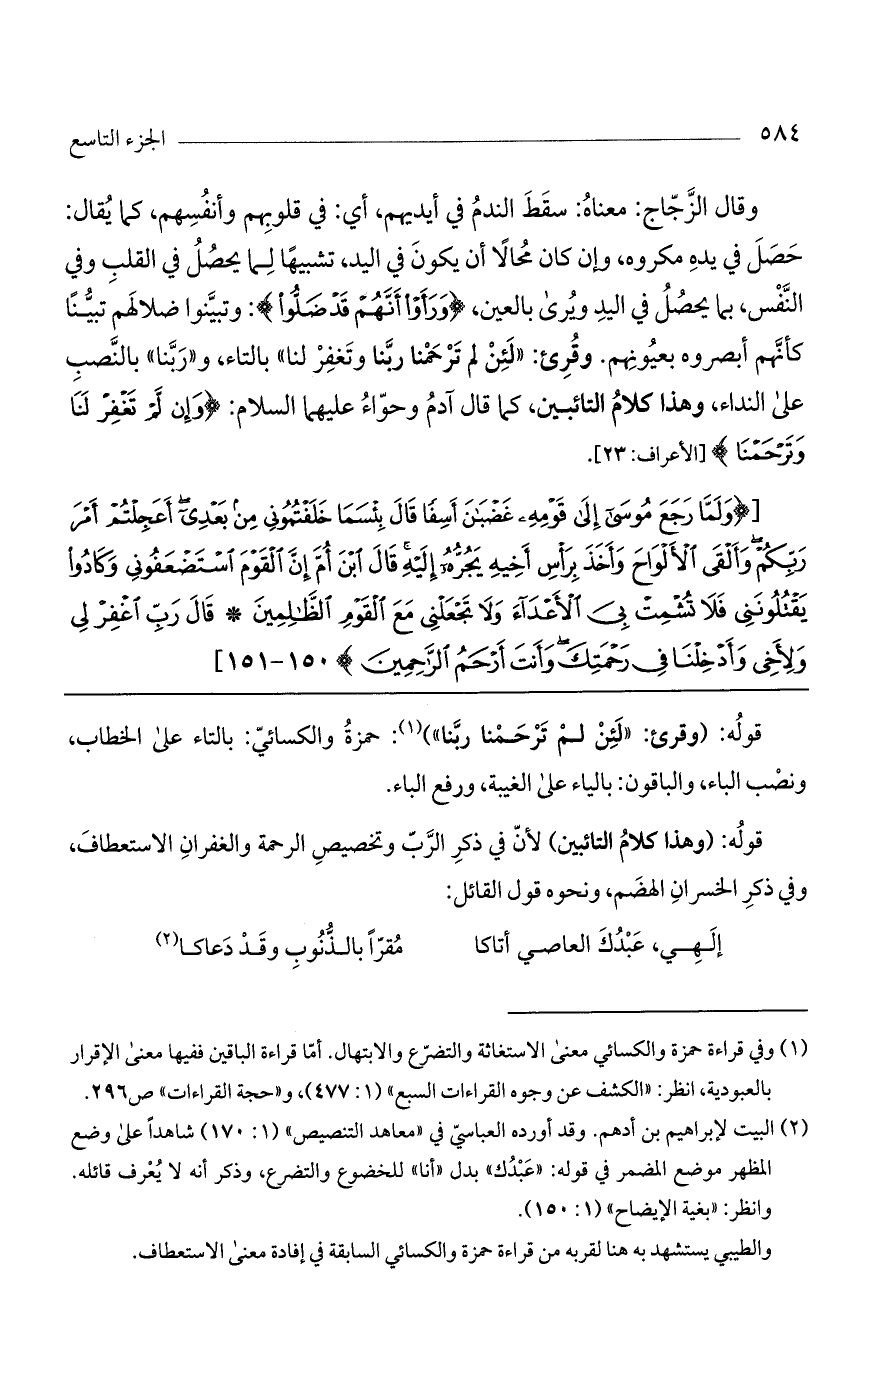 ٥٨٤ الجزء التاسع
وقال الزَّجّاج: معناهُ: سقَطَ الندمُ في أيديهم، أي: في قلوبِهم وأنفُسِهم، كما يُقال:
حَصَلَ في يدهِ مكروه، وإن كان مُحالًا أن يكونَ في اليد، تشبيهًا لِـما يحصُلُ في القلبِ وفي
النَّفْس، بما يحصُلُ في اليدِ ويُرىٰ بالعين، ﴿وَرَأَوْا أَنَّهُمْ قَدْ ضَلُّوا﴾: وتبيَّنوا ضلالَهم تبيُّـنًا
كأنَّهم أبصروه بعيُونِهم. وقُرِئ: «لَئِنْ لم تَرْحَمْنا ربَّنا وتَغفِرْ لنا» بالتاء، و«رَبَّنا» بالنَّصبِ
علىٰ النداء، وهذا كلامُ التائبـين، كما قال آدمُ وحوّاءُ عليهما السلام: ﴿وَإِن لَّمْ تَغْفِرْ لَنَا
وَتَرْحَمْنَا﴾ [الأعراف: ٢٣].
[﴿وَلَمَّا رَجَعَ مُوسَىٰٓ إِلَىٰ قَوْمِهِۦ غَضْبَٰنَ أَسِفًا قَالَ بِئْسَمَا خَلَفْتُمُونِي مِنۢ بَعْدِيٓ أَعَجِلْتُمْ أَمْرَ
رَبِّكُمْ وَأَلْقَى ٱلْأَلْوَاحَ وَأَخَذَ بِرَأْسِ أَخِيهِ يَجُرُّهُۥٓ إِلَيْهِ قَالَ ٱبْنَ أُمَّ إِنَّ ٱلْقَوْمَ ٱسْتَضْعَفُونِي وَكَادُوا۟
يَقْتُلُونَنِي فَلَا تُشْمِتْ بِيَ ٱلْأَعْدَآءَ وَلَا تَجْعَلْنِي مَعَ ٱلْقَوْمِ ٱلظَّٰلِمِينَ * قَالَ رَبِّ ٱغْفِرْ لِي
وَلِأَخِي وَأَدْخِلْنَا فِي رَحْمَتِكَ وَأَنتَ أَرْحَمُ ٱلرَّٰحِمِينَ﴾ ١٥٠-١٥١]
قولُه: (وقرئ: «لَئِنْ لـمْ تَرْحَـمْنا ربَّنا»)(١): حمزةُ والكسائيّ: بالتاء علىٰ الخطاب،
ونصْب الباء، والباقون: بالياء علىٰ الغيبة، ورفع الباء.
قولُه: (وهذا كلامُ التائبين) لأنّ في ذكرِ الرَّبّ وتخصيصِ الرحمة والغفرانِ الاستعطافَ،
وفي ذكرِ الخسرانِ الهضَم، ونحوه قول القائل:
إلَـهِـي، عَبْدُكَ العاصـي أتاكا مُقرّاً بالـذُّنُوبِ وقَـدْ دَعاكـا(٢)
(١) وفي قراءة حمزة والكسائي معنىٰ الاستغاثة والتضرّع والابتهال. أمّا قراءة الباقين ففيها معنىٰ الإقرار
بالعبودية، انظر: «الكشف عن وجوه القراءات السبع» (١: ٤٧٧)، و«حجة القراءات» ص٢٩٦.
(٢) البيت لإبراهيم بن أدهم. وقد أورده العباسيّ في «معاهد التنصيص» (١: ١٧٠) شاهداً علىٰ وضع
المظهر موضع المضمر في قوله: «عَبْدُك» بدل «أنا» للخضوع والتضرع، وذكر أنه لا يُعْرف قائله.
وانظر: «بغية الإيضاح» (١: ١٥٠).
والطيبي يستشهد به هنا لقربه من قراءة حمزة والكسائي السابقة في إفادة معنىٰ الاستعطاف.